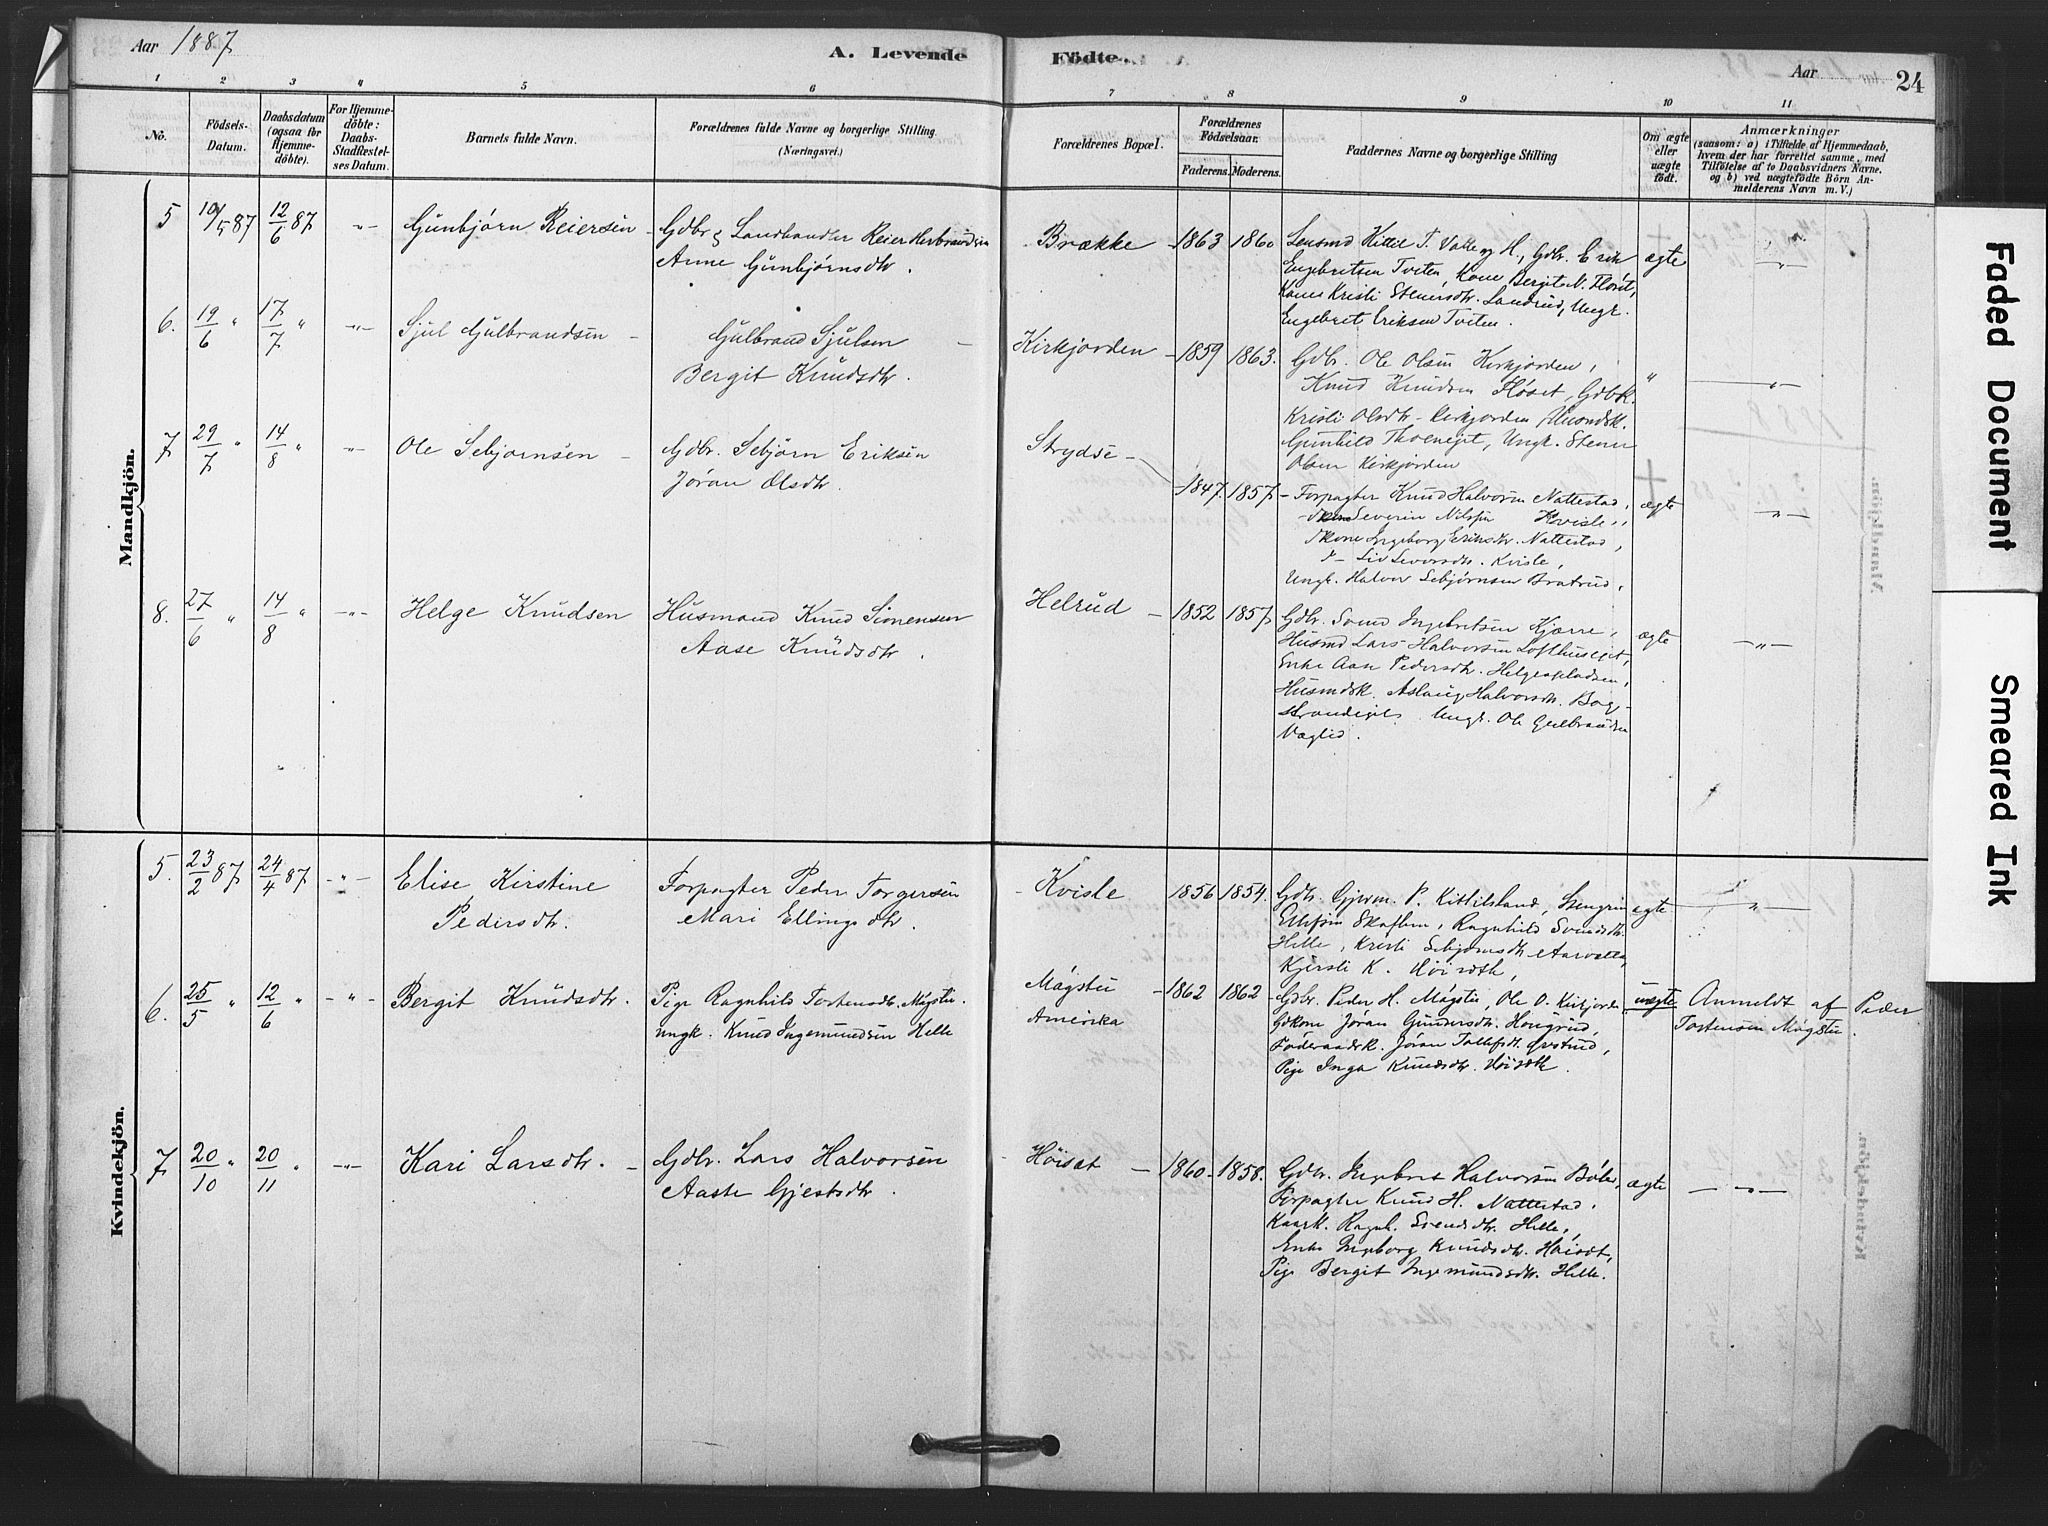 Aar 1887
A. Levende Födte.
Aar
24
1 2 3 4 5 6 7 8 9 10 11
No.
Födsels-Datum.
Daabsdatum (ogsaa for Hjemme-döbte).
For Hjemme-döbte: Daabs-Stadfæstel-ses Datum.
Barnets fulde Navn.
Forældrenes fulde Navne og borgerlige Stilling. (Næringsvei.)
Forældrenes Bopæl.
Forældrenes Födselsaar.
Faderens. Moderens.
Faddernes Navne og borgerlige Stilling
Om ægte eller uægte födt.
Anmærkninger
(saasom: a) i Tilfælde af Hjemmedaab,
hvem der har forrettet samme, med
Tilföielse af to Daabsvidners Navne.
og b) ved uægtefödte Börn An-
melderens Navn m. V.)
Mandkjön.
5 10/5 87 12/6 87 -"- Gunbjørn Reiersen - Gdbr & Landhandler Reier Herbrandsen
Anne Gunbjørnsdtr.
Brække - 1863 1860 Lensmd Kittil T. Valle og H., Gdbr. Erik ægte -"-
Engebretsen Tveten, Kone Bergit N. Fløset,
Kone Kristi Stenersdtr. Landrud, Ungk.
Engebret Eriksen Tveten.
6. 19/6 " 17/7 " -"- Sjul Gulbrandsen - Gulbrand Sjulsen -
Bergit Knudsdtr.
Kirkjorden - 1859 1863. Gdbr. Ole Olsen Kirkjorden, " -"-
Knud Knudsen Fløset, Gdbk.
Kristi Olsdtr. Kirkjorden, Husmdsk.
Gunhild Thoeneget, Ungk. Stener
Olsen Kirkjorden
7 29/7 " 14/8 " -"- Ole Sebjørnsen - Gdbr. Sebjørn Eriksen
Jøran Olsdtr.
Strydse - 1847. 1857 - Forpagter Knud Halvorsen Nattestad, ægte -"-
Severin Nilssen Kvisle,
Kone Ingeborg Eriksdtr. Nattestad,
- Liv Sevorsdtr. Kvisle,
Ungk. Halvor Sebjørnsen Bratrud.
8. 27/6 " 14/8 " -"- Helge Knudsen Husmand Knud Simensen
Aase Knudsdtr.
Helrud - 1852 1857 Gdbr. Svend Ingebretsen Kjærre, ægte -"-
Husmd Lars Halvorsen Lofthuseiet,
Enke Aase Pedersdtr. Helgespladsen,
Husmdsk. Aslaug Halvorsdtr. Borg-
strandeiet. Ungk. Ole Gulbrandsen
Væglid.
Kvindekjön.
5. 23/2 87 24/4 87 -"- Elise Kirstine Forpagter Peder Torgersen
Pedersdtr. Mari Ellingsdtr.
- Kvisle 1856 1854. Gdbr. Gjerm. P. Kittilsland, Stengrim ægte -"-
Ellefsen Skaflem, Ragnhild Svendsdtr.
Helle, Kristi Sebjørnsdtr Aarvalta,
Kjersti K. Høisæth,
6. 25/5 " 12/6 " -"- Bergit Knudsdtr. Pige Ragnhild Tostensdtr. Mågstu.
Ungk. Knud Ingemundsen Helle
Mågstu - 1862 1862 - Gdbr. Peder H. Mågstu, Ole O. Kirkjorden uægte Anmeldt af Peder
Amerika Gdkone Jøran Gundersdtr. Hougrud, Tostensen Mågstu.
Føderaadsk. Jøran Tollefsdtr. Ørstrud,
Pige Inga Knudsdtr. Høisæth.
7 20/10 " 20/11 " -"- Kari Larsdtr. - Gdbr. Lars Halvorsen
Aaste Gjestsdtr.
- Höisæt - 1860 - 1858. Gdbr. Ingebret Halvorsen Bøler, ægte -"-
Forpagter Knud H. Nattestad,
Kaark. Ragnh. Svendsdtr. Helle,
Enke Ingeborg Knudsdtr. Høisæt,
Pige Bergit Ingemundsdtr. Helle.
Faded Document
Smeared Ink